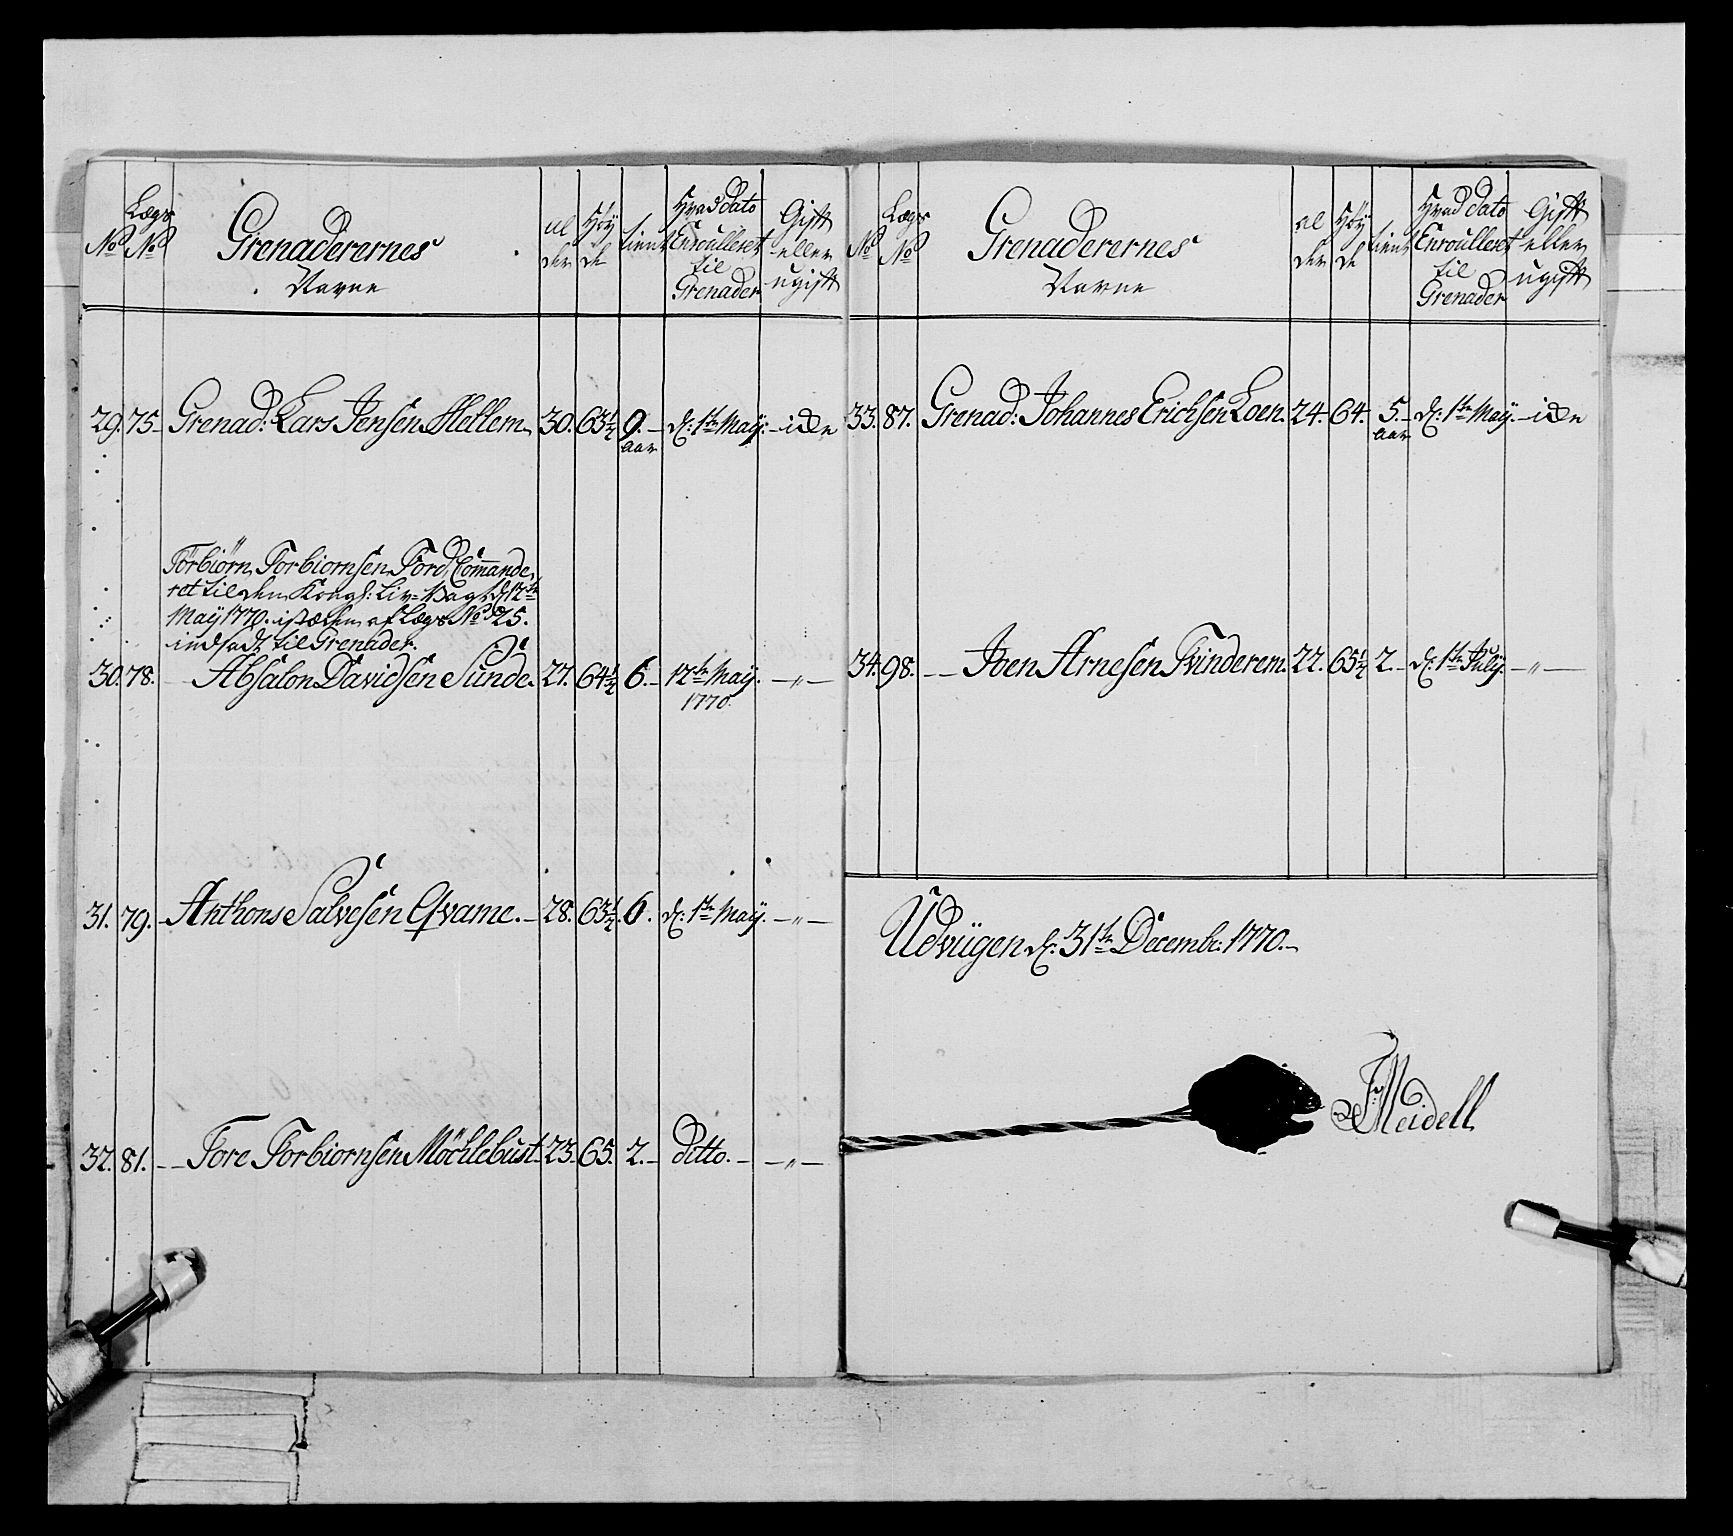 No
Lægs No
Grenaderernes
Navne
al
der
Høy
de
tient
Hvad dato
Enroulleret
til
Grenader
Gift
eller
ugift
29. 75. Grenad: Lars Jensen Hellem 30. 63½ 9. aar d: 1te Maÿ. ide
Torbiörn Torbiornsen Ford, Commande-
ret til den Kongl: Liv-Vagt d: 12te
Maÿ 1770. i stæden af Lægs No 25.
indsadt til Grenader.
30. 78. — Absalon Davidsen Sunde. 27. 64½ 6. 12te Maÿ. 1770. — „ —
31. 79. Anthons Salvesen Qvame. 28. 63½ 6. d: 1te Maÿ. — „ —
32. 81. — Tore Torbiornsen Möchlebust 23. 65. 2. ditto. — „ —
No
Lægs No
Grenaderernes
Navne
al
der
Høy
de
tient
Hvad dato
Enroulleret
til
Grenader
Gift
eller
ugift
33. 87. Grenad: Johannes Erichsen Loen. 24. 64. 5. aar d: 1te Maÿ. ide
34. 98. — Joen Arnesen Tvinderem. 22. 65½ 2. d: 1te Julÿ. — „ —
Udvügen d: 31te Decembr: 1770.
F: Meidell